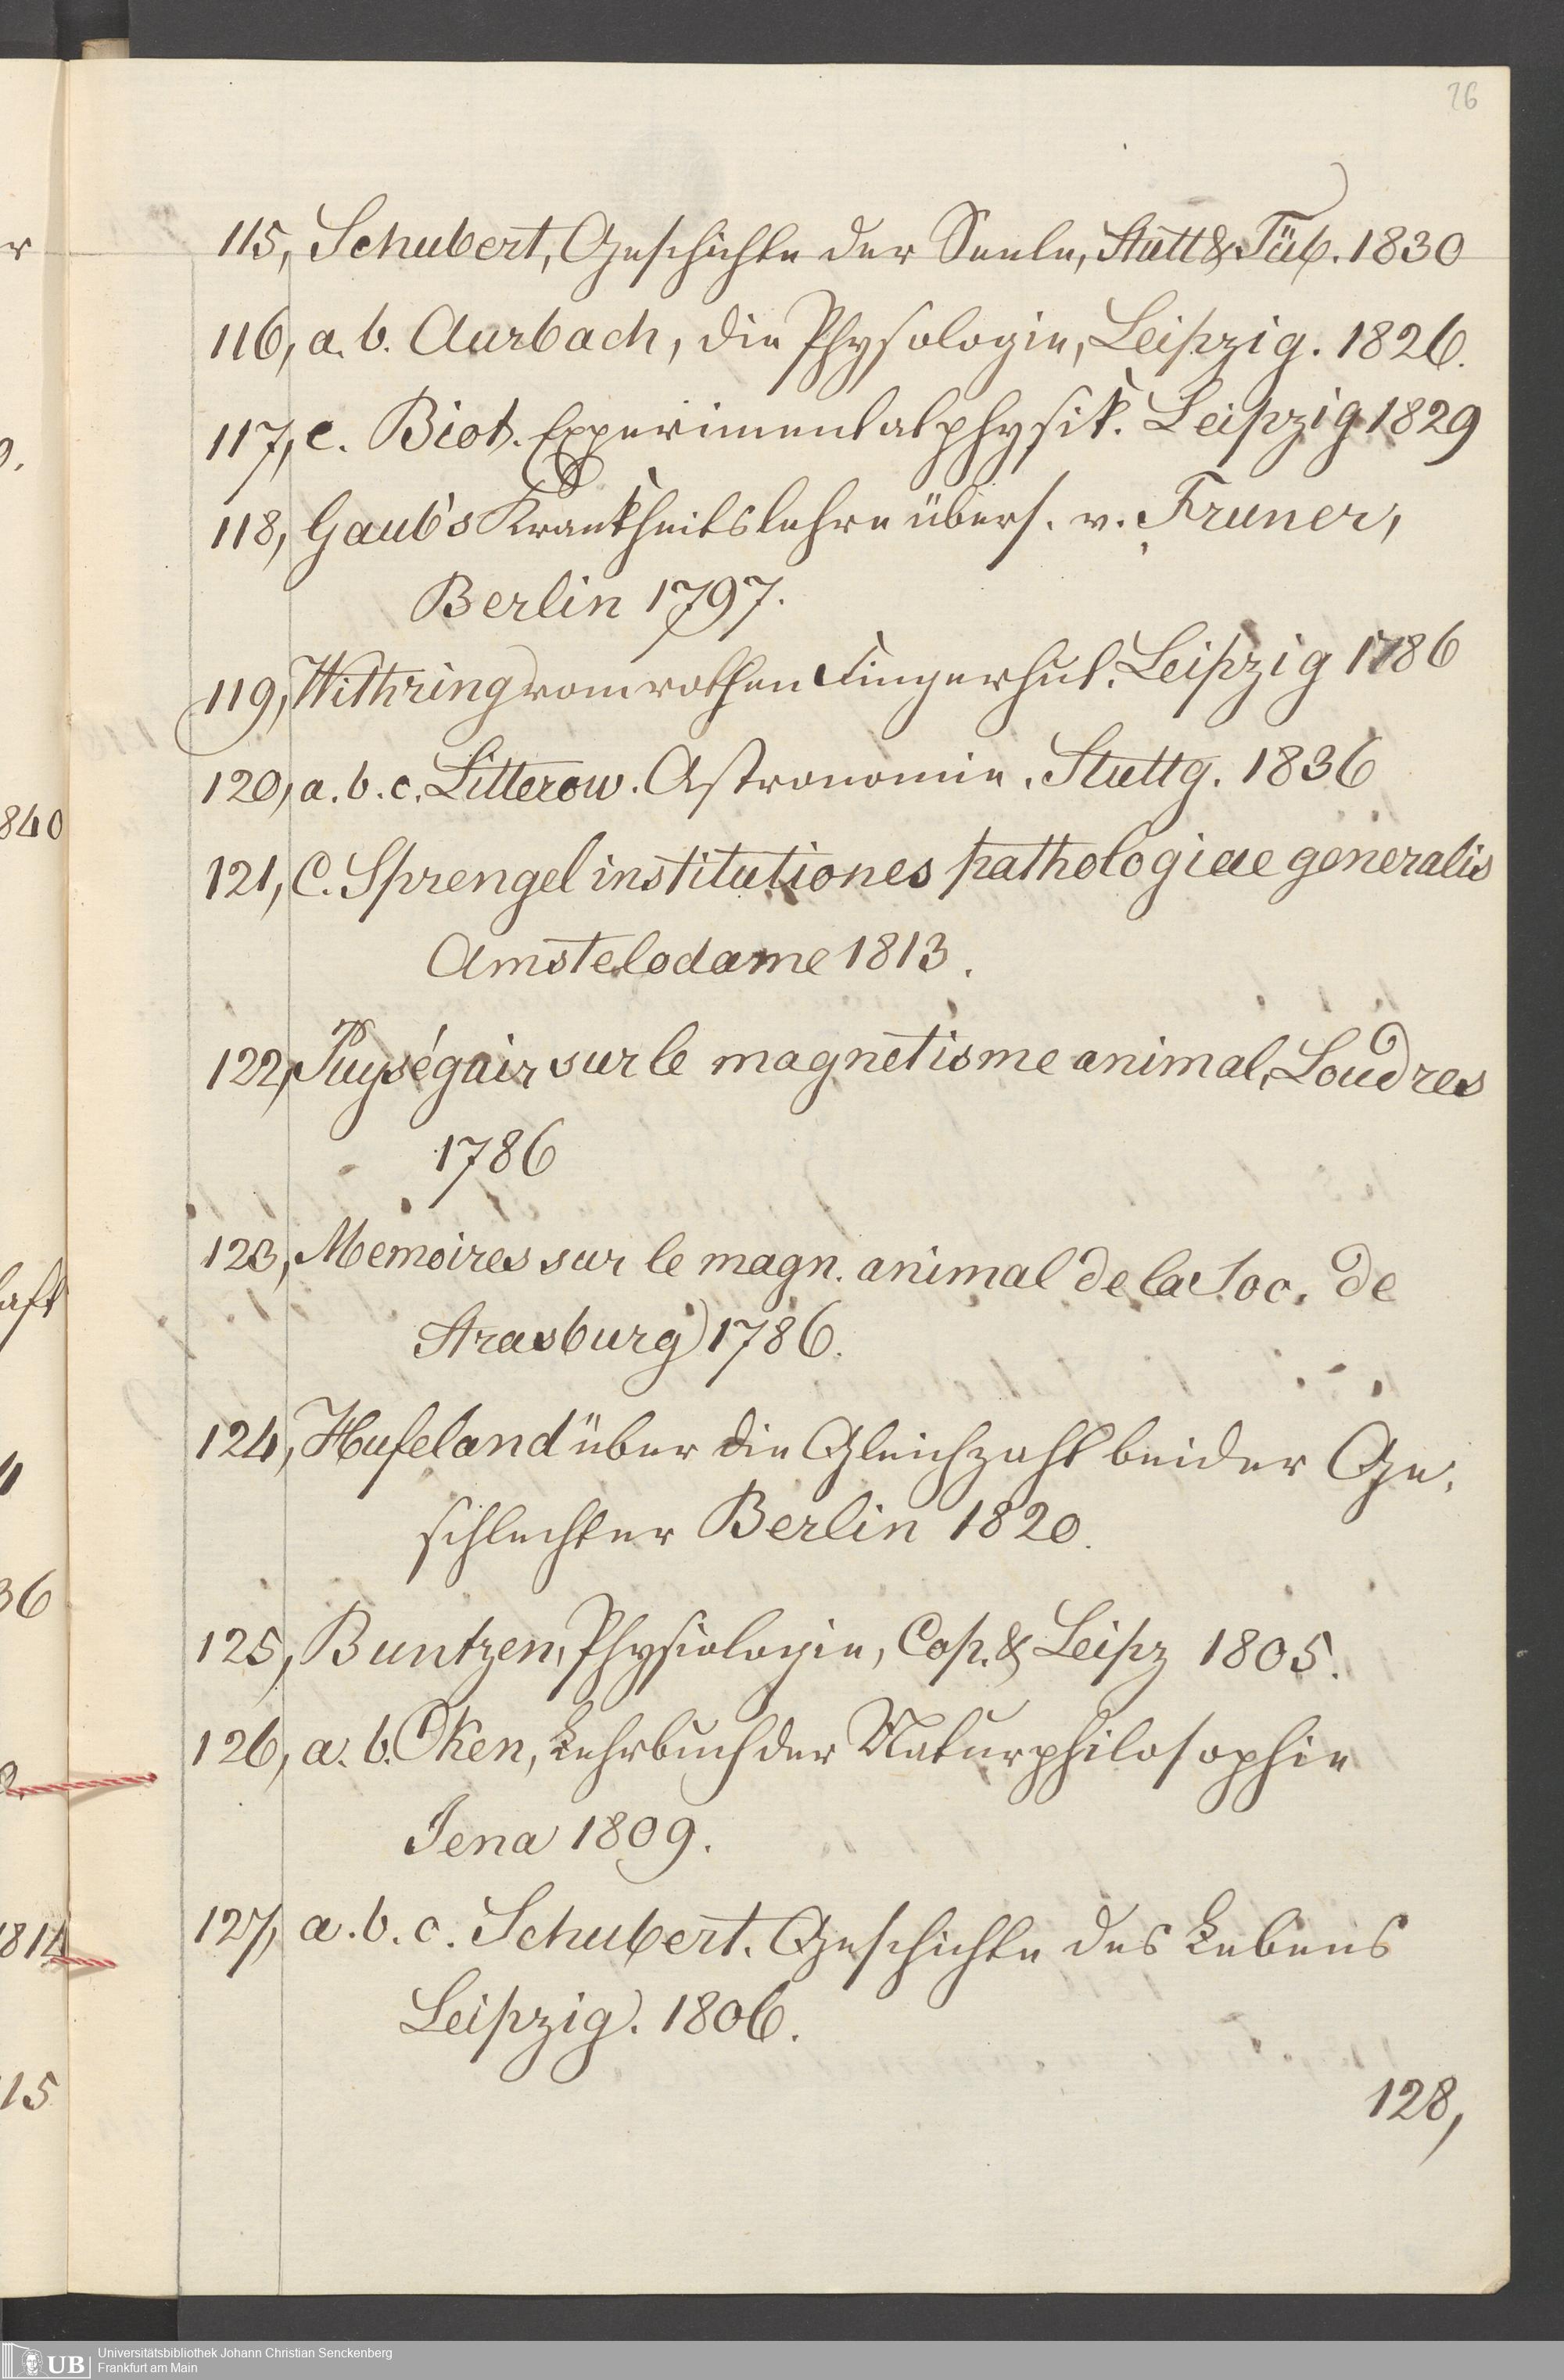 26
115, Schubert, Geschichte der Seele, Stutt & Tüb. 1830
116, a. b. Aurbach, die Physologie, Leipzig. 1826.
117, c. Biot. Experimentalphysik. Leipzig 1829
118, Gaub's Krankheitslehre übers. v. Fruner,
Berlin 1797.
119, Withring vom rothen Fingerhut. Leipzig 1786
120, a. b. c. Litterow. Astronomie. Stuttg. 1836
121, C. Sprengel institutiones pathologiae generalis
Amstelodame 1813.
122, Puységuir sur le magnetisme animal, Loudres
1786
123, Memoires sur le magn. animal de la Soc. de
Strasburg 1786.
124, Hufeland über die Gleichzahl beider Ge-
schlechter Berlin 1820.
125, Buntzen, Physiologie, Cop. & Leipz 1805.
126, a. b. Oken, Lehrbuch der Naturphilosophie
Jena 1809.
127, a. b. c. Schubert. Geschichte des Lebens
Leipzig. 1806.
128,
r
9.
840
aft
4
36
1814
15
UB
Universitätsbibliothek Johann Christian Senckenberg
Frankfurt am Main